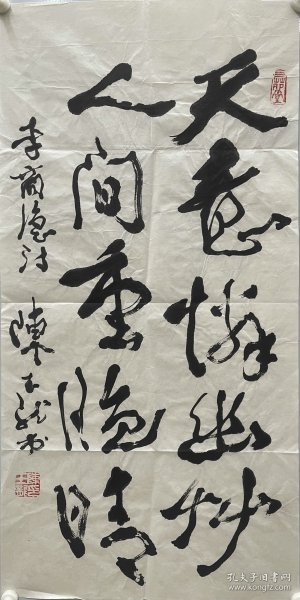 天意憐幽草
人间重晚晴
李商隐诗 陳玉龙书
孔夫子旧书网